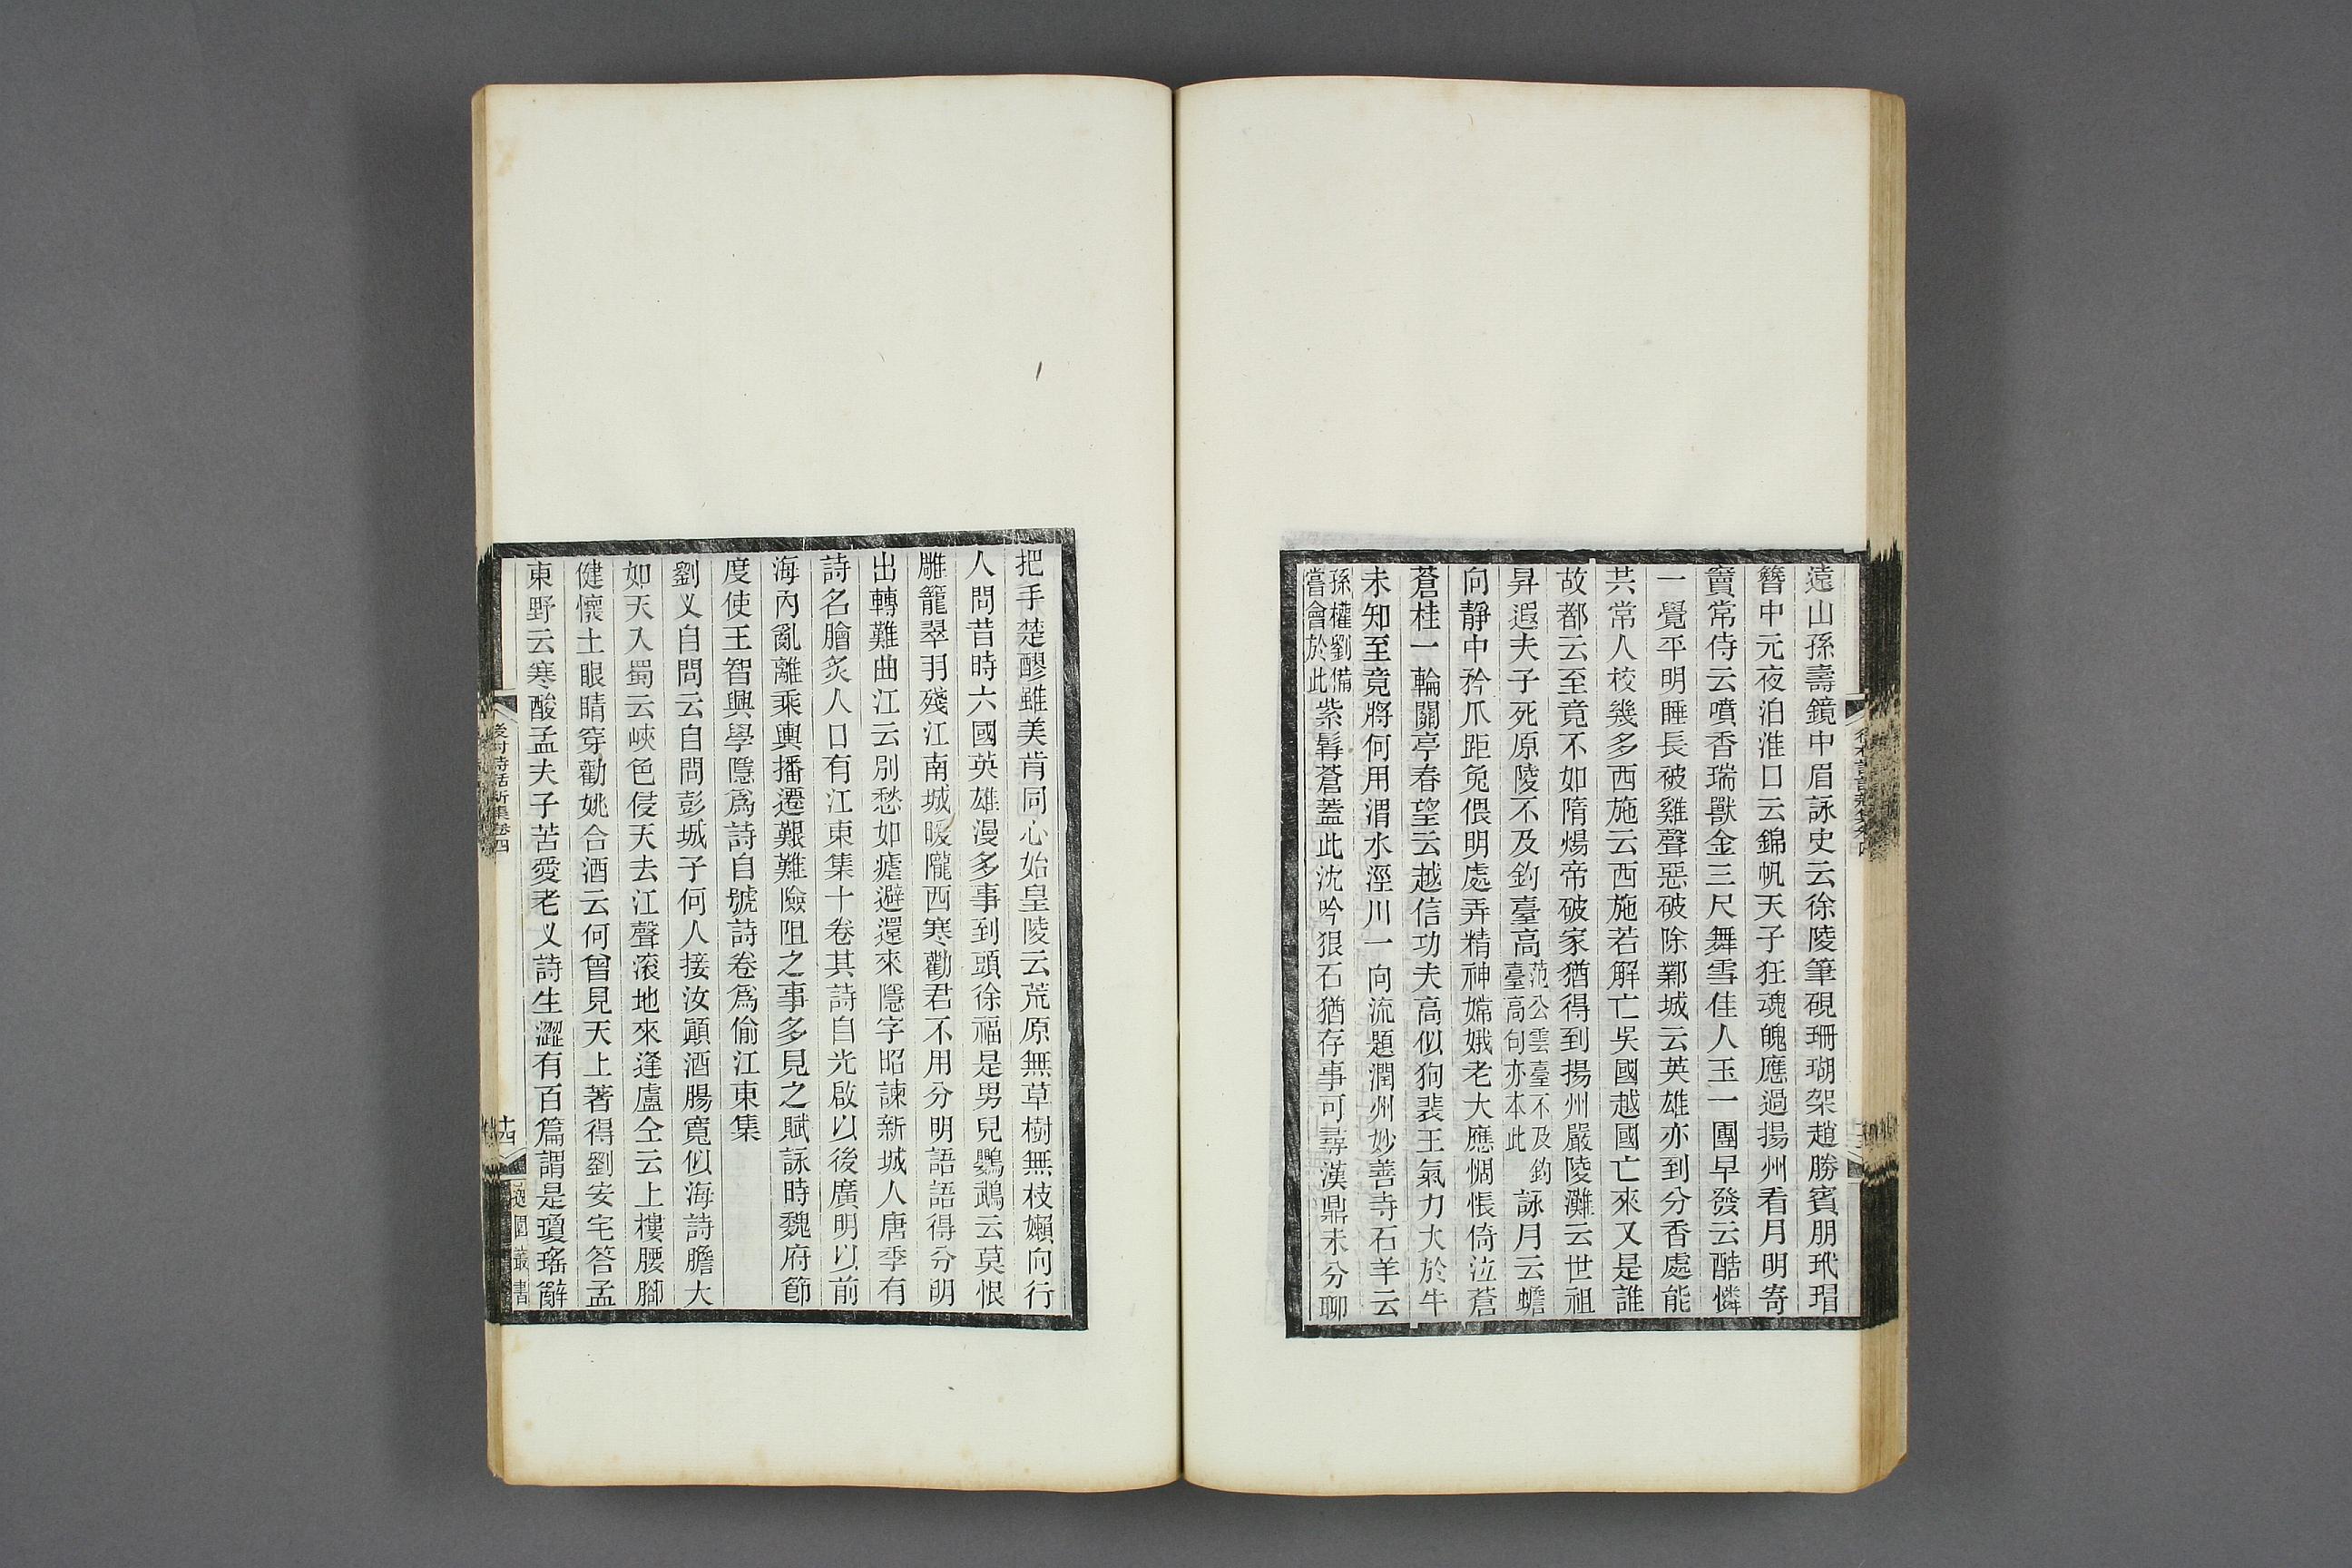 遠山孫壽鏡中眉詠史云徐陵筆硯珊瑚架趙勝賓朋玳瑁
簪中元夜泊淮口云錦帆天子狂魂魄應過揚州看月明寄
竇常侍云噴香瑞獸金三尺舞雪佳人玉一團早發云酷憐
一覺平明睡長被雞聲惡破除鄴城云英雄亦到分香處能
共常人校幾多西施云西施若解亡吳國越國亡來又是誰
故都云至竟不如隋煬帝破家猶得到揚州嚴陵灘云世祖
昇遐夫子死原陵不及釣臺高范公雲臺不及釣臺高句亦本此詠月云蟾
向靜中矜爪距兔偎明處弄精神嫦娥老大應惆悵倚泣蒼
蒼桂一輪關亭春望云越信功夫高似狗裴王氣力大於牛
未知至竟將何用渭水涇川一向流題潤州妙善寺石羊云
孫權劉備嘗會於此紫髯蒼蓋此沈吟狠石猶存事可尋漢鼎未分聊
把手楚醪雖美肯同心始皇陵云荒原無草樹無枝嬾向行
人問昔時六國英雄漫多事到頭徐福是男兒鸚鵡云莫恨
雕籠翠羽殘江南城暖隴西寒勸君不用分明語語得分明
出轉難曲江云別愁如瘧避還來隱字昭諫新城人唐季有
詩名膾炙人口有江東集十卷其詩自光啟以後廣明以前
海內亂離乘輿播遷艱難險阻之事多見之賦詠時魏府節
度使王智興學隱爲詩自號詩卷爲偷江東集
劉乂自問云自問彭城子何人接汝顚酒腸寬似海詩膽大
如天入蜀云峽色侵天去江聲滚地來逢盧仝云上樓腰腳
健懷土眼睛穿勸姚合酒云何曾見天上著得劉安宅答孟
東野云寒酸孟夫子苦愛老乂詩生澀有百篇謂是瓊瑤辭
後村詩話新集卷四
十四
適園叢書